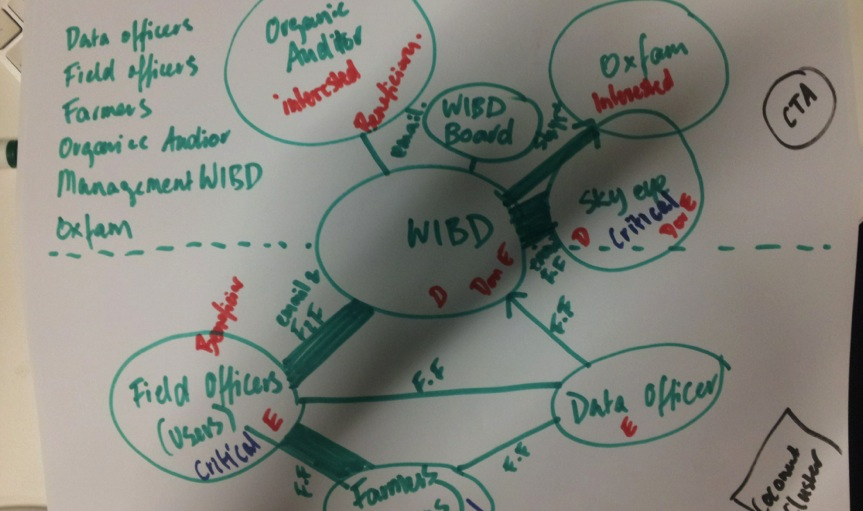 Data officers
Field officers
Farmers
Organiec Audior
Management WIBD
Oxfam
Organic
Auditor
interested
Beneficiary.
email
WIBD
Board
Oxfam
Interested
CTA
WIBD
D
D on E
Sky eye
critical
D
D on E
F.F
email &
F.F
Beneficiar
Field Officers
(users)
E
critical
F.F
F.F
Data Officer
E
F.F
F.F
Farmers
Coconut
Cluster